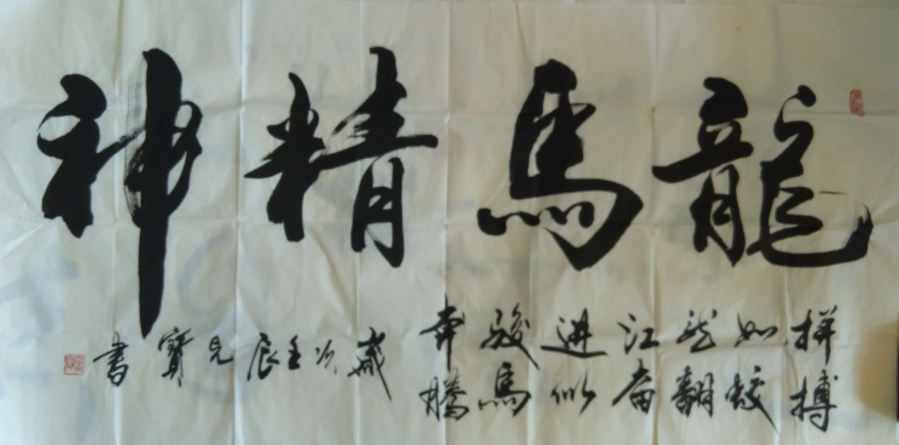 龍馬精神
拼搏
如蛟
龙翻
江奋
进似
骏馬
奔騰
歲次壬辰
見寶書